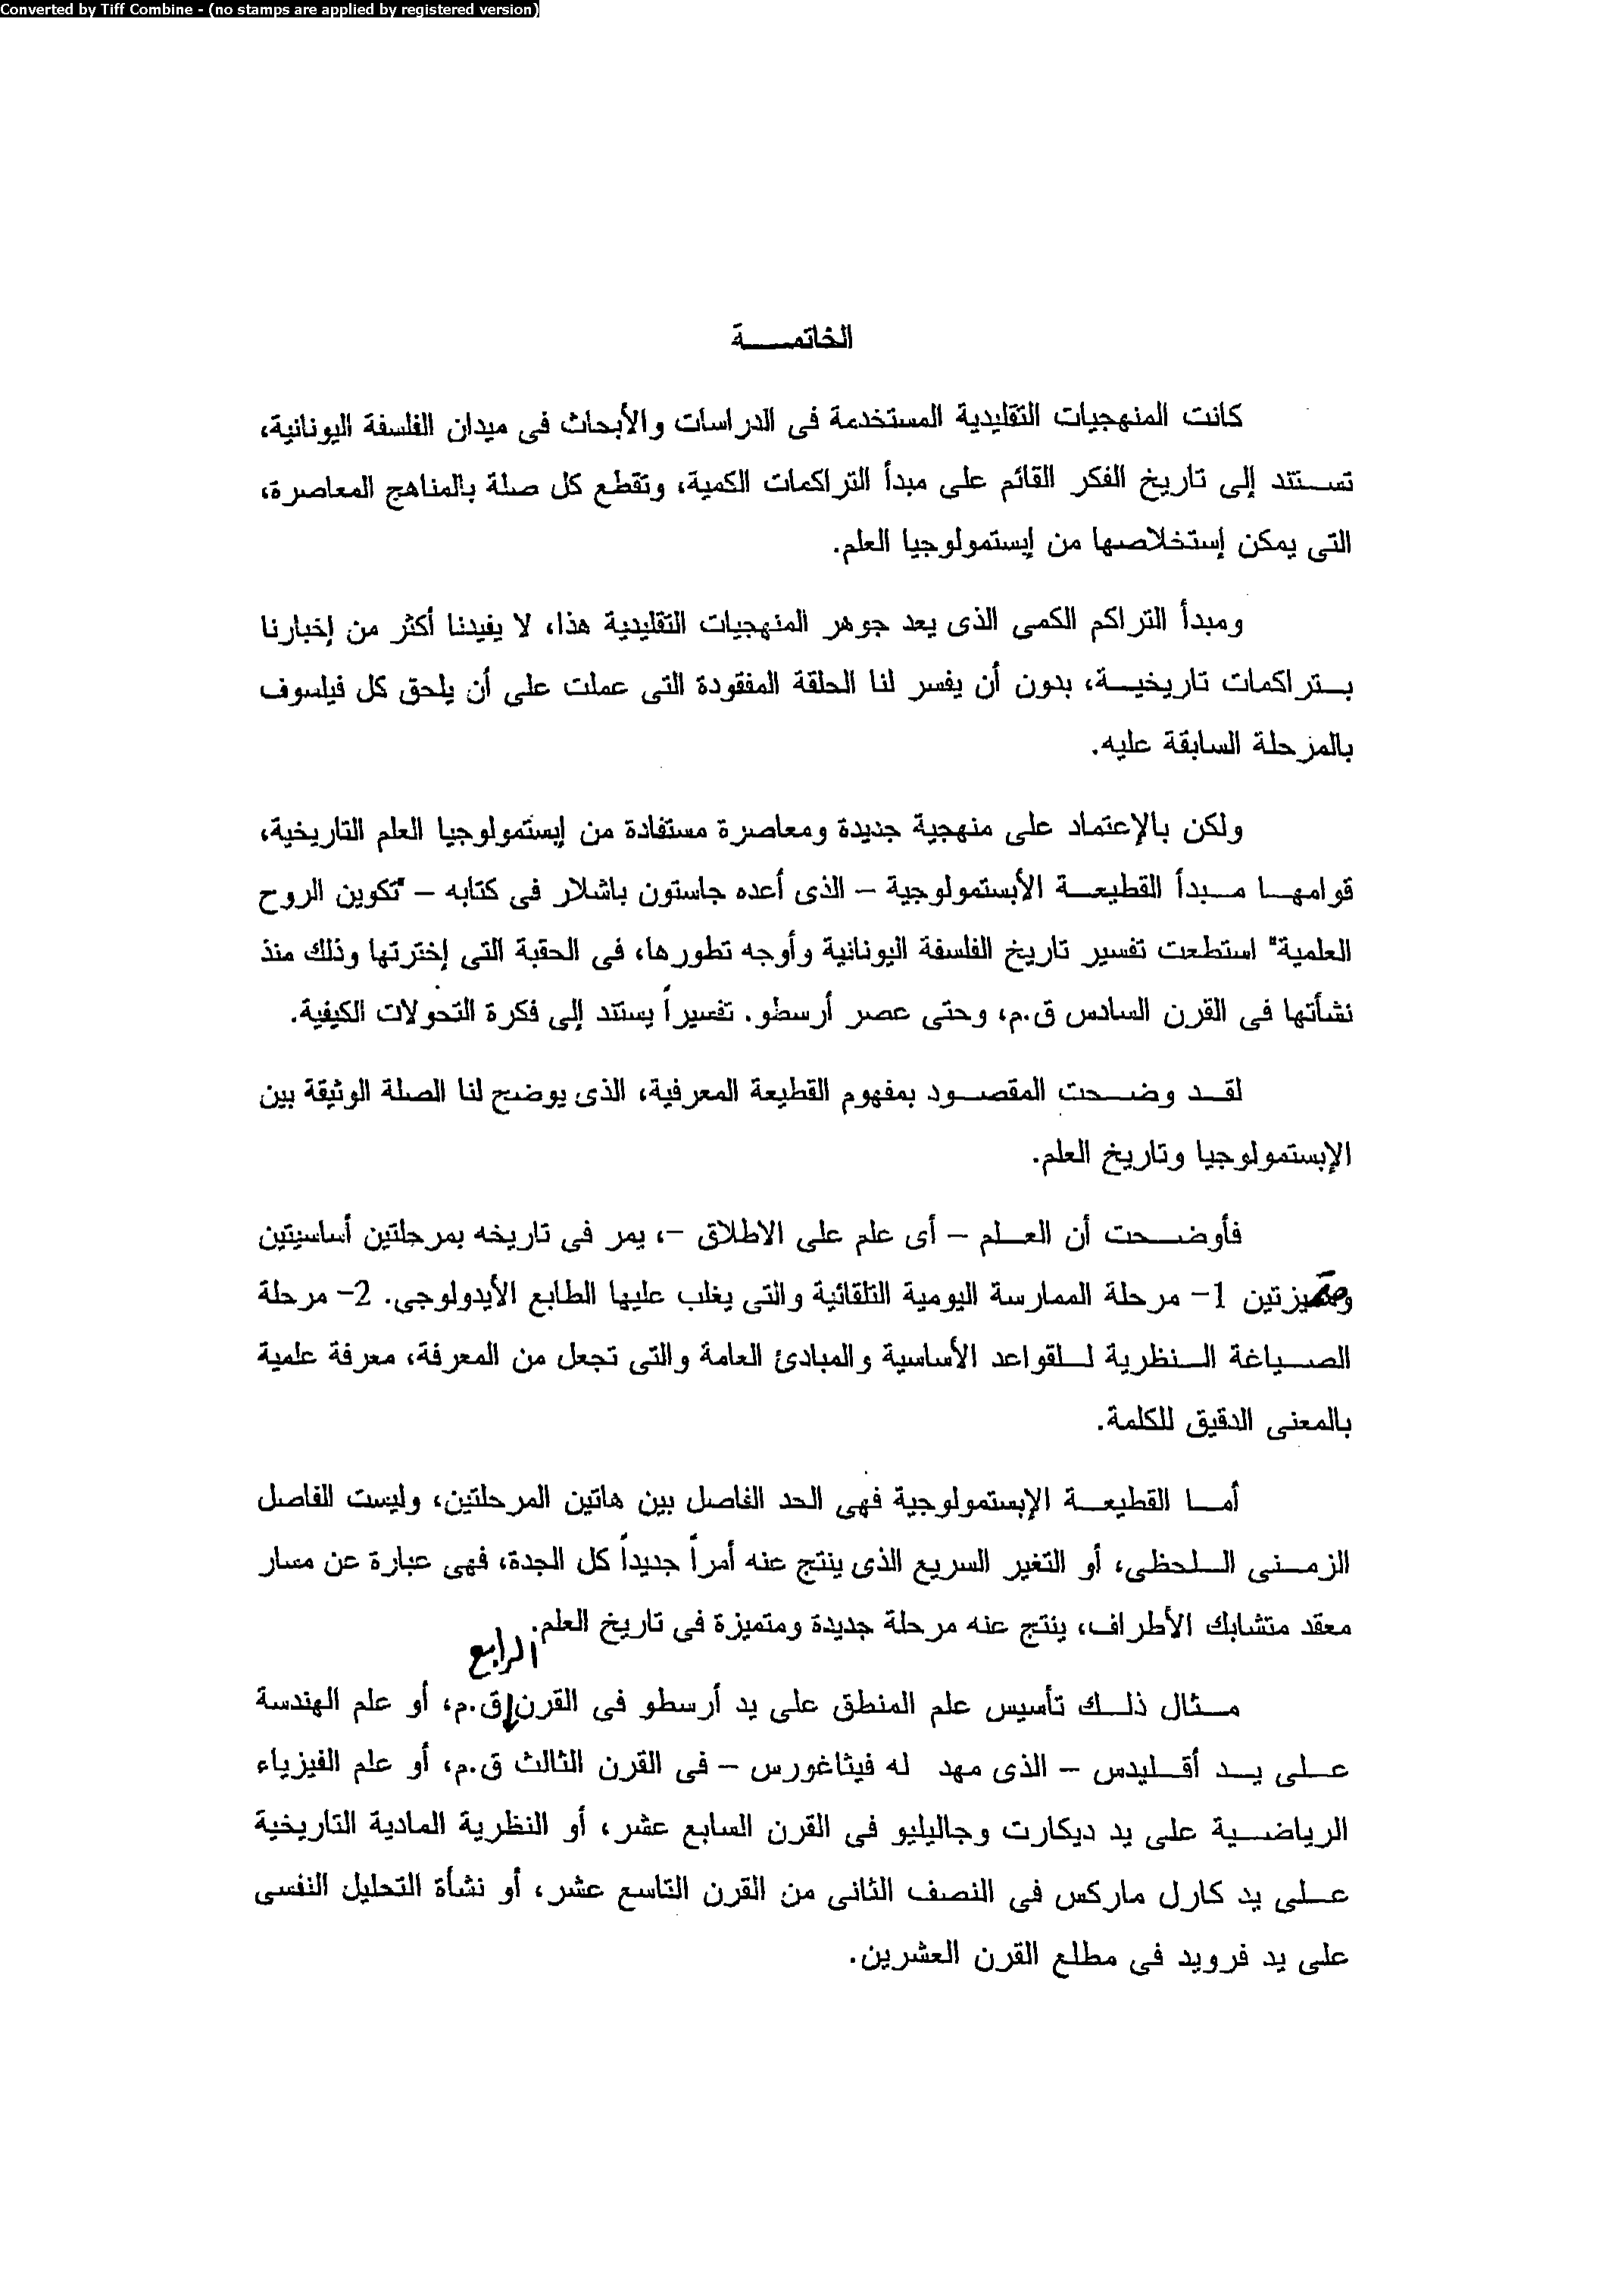 Converted by Tiff Combine - (no stamps are applied by registered version)
الخاتمـــــة
كانت المنهجيات التقليدية المستخدمة فى الدراسات والأبحاث فى ميدان الفلسفة اليونانية،
تســتند إلى تاريخ الفكر القائم على مبدأ التراكمات الكمية، وتقطع كل صلة بالمناهج المعاصرة،
التى يمكن إستخلاصها من إبستمولوجيا العلم.
ومبدأ التراكم الكمى الذى يعد جوهر المنهجيات التقليدية هذا، لا يفيدنا أكثر من إخبارنا
بــتراكمات تاريخيــة، بدون أن يفسر لنا الحلقة المفقودة التى عملت على أن يلحق كل فيلسوف
بالمرحلة السابقة عليه.
ولكن بالإعتماد على منهجية جديدة ومعاصرة مستفادة من إبستمولوجيا العلم التاريخية،
قوامهــا مــبدأ القطيعــة الأبستمولوجية – الذى أعده جاستون باشلار فى كتابه – "تكوين الروح
العلمية" استطعت تفسير تاريخ الفلسفة اليونانية وأوجه تطورها، فى الحقبة التى إخترتها وذلك منذ
نشأتها فى القرن السادس ق.م، وحتى عصر أرسطو. تفسيراً يستند إلى فكرة التحولات الكيفية.
لقــد وضــحت المقصــود بمفهوم القطيعة المعرفية، الذى يوضح لنا الصلة الوثيقة بين
الإبستمولوجيا وتاريخ العلم.
فأوضــحت أن العــلم – أى علم على الاطلاق –، يمر فى تاريخه بمرحلتين أساسيتين
ومتميزتين 1- مرحلة الممارسة اليومية التلقائية والتى يغلب عليها الطابع الأيدولوجى. 2- مرحلة
الصــياغة الــنظرية لــلقواعد الأساسية والمبادئ العامة والتى تجعل من المعرفة، معرفة علمية
بالمعنى الدقيق للكلمة.
أمــا القطيعــة الإبستمولوجية فهى الحد الفاصل بين هاتين المرحلتين، وليست الفاصل
الزمــنى الــلحظى، أو التغير السريع الذى ينتج عنه أمراً جديداً كل الجدة، فهى عبارة عن مسار
معقد متشابك الأطراف، ينتج عنه مرحلة جديدة ومتميزة فى تاريخ العلم.
مــثال ذلــك تأسيس علم المنطق على يد أرسطو فى القرن الرابع ق.م، أو علم الهندسة
عــلى يــد أقــليدس – الذى مهد له فيثاغورس – فى القرن الثالث ق.م، أو علم الفيزياء
الرياضــية على يد ديكارت وجاليليو فى القرن السابع عشر، أو النظرية المادية التاريخية
عــلى يد كارل ماركس فى النصف الثانى من القرن التاسع عشر، أو نشأة التحليل النفسى
على يد فرويد فى مطلع القرن العشرين.